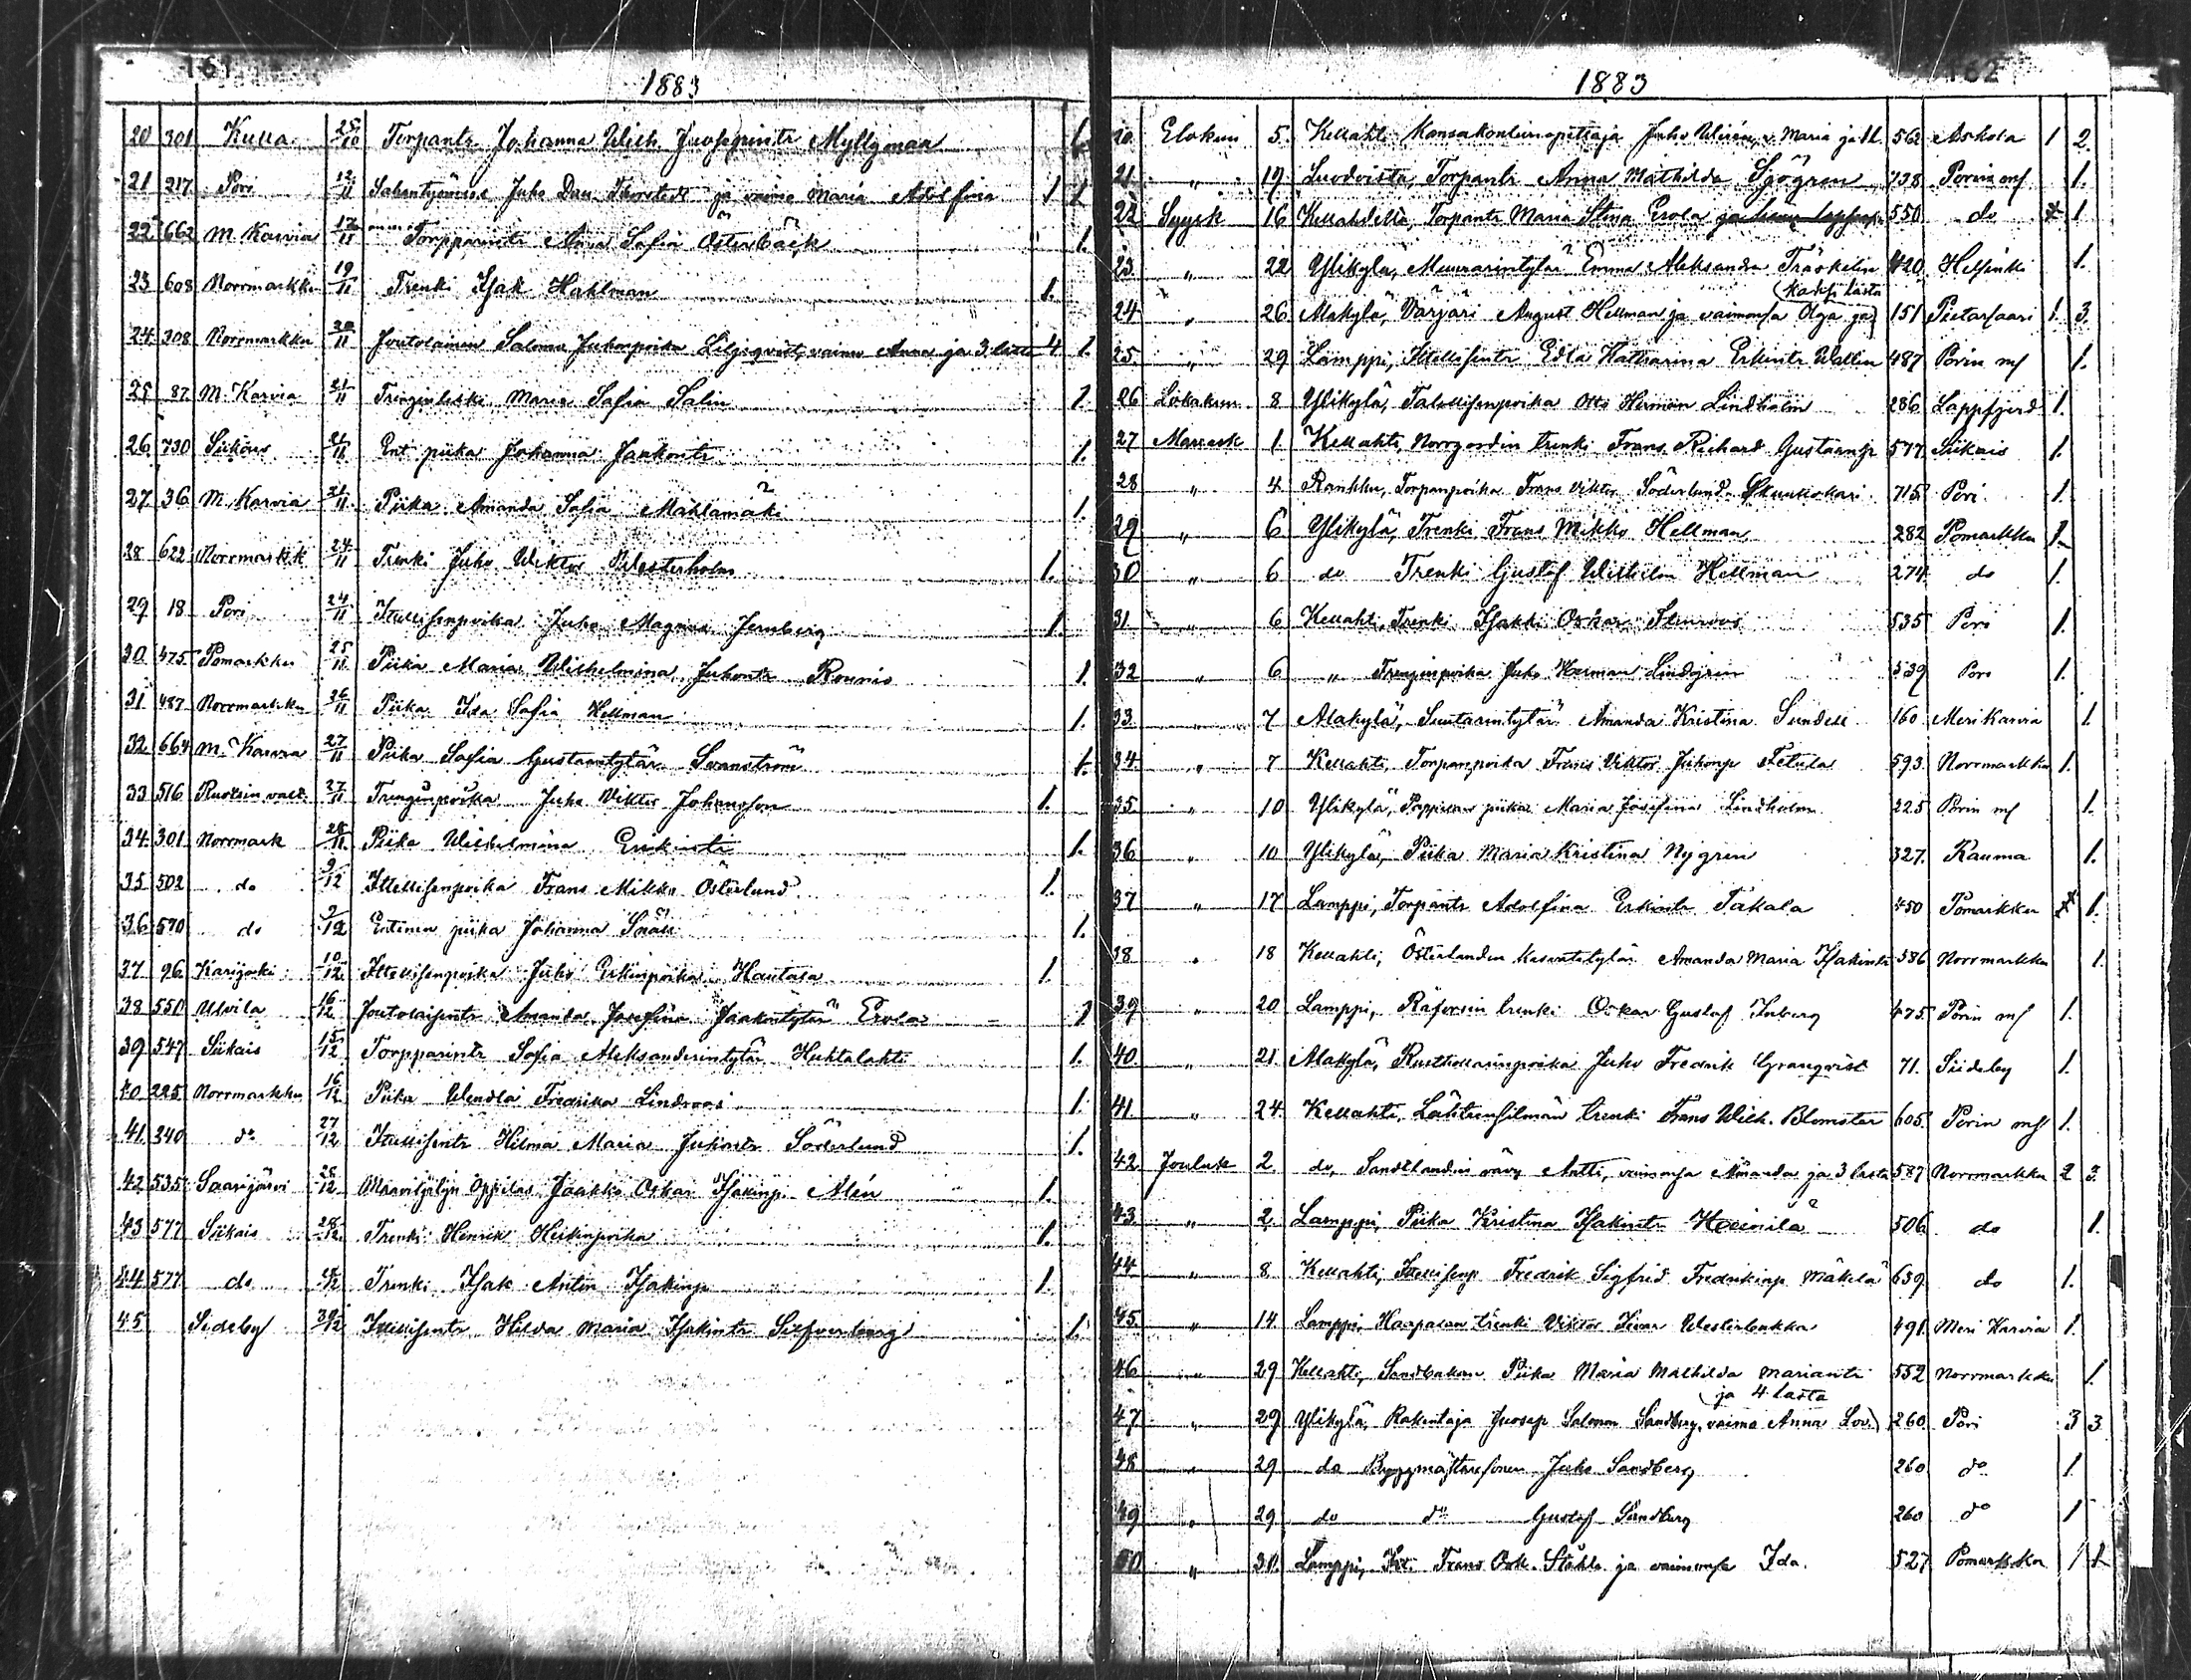 161
1883
20 301 Kulla 25/10 Torpantr Johanna Wilh. Juosepintr Myllymaa 1.
21 217 Pori 12/11 Sahantyömies Juho Dan. Thorstedt ja vaimo Maria Adolfina 1 1
22 662 M. Karvia 17/11 Torpparintr Anna Sofia Österback 1.
23 608 Norrmarkku 19/11 Trenki Isak Hahlman 1.
24 308 Norrmarkku 20/11 Joutolainen Salomo Juhonpoika Liljeqvist, vaimo Anna ja 3 lasta 4. 1.
25 87 M. Karvia 21/11 Trenginleski Maria Sofia Salin 1.
26 730 Siikais 21/11 Ent. piika Johanna Jaakontr 1.
27 36 M. Karvia 21/11 Piika Amanda Sofia Mahlamäki 1.
28 622 Norrmarkk 24/11 Trenki Juho Wiktor Westerholm 1.
29 18 Pori 24/11 Itsellisenpoika Juho Magnus Jernberg 1.
30 475 Pomarkku 25/11 Piika Maria Wilhelmina Juhontr Rounio 1.
31 487 Norrmarkku 26/11 Piika Ida Sofia Hellman 1.
32 664 M. Karvia 27/11 Piika Sofia Gustaantytär Svanström 1.
33 516 Ruotsin vall. 27/11 Trenginpoika Juho Viktor Johansson 1.
34 301 Norrmark 28/11 Piika Wilhelmina Erikintr 1.
35 502 do 9/12 Itsellisenpoika Frans Mikko Österlund 1.
36 570 do 9/12 Entinen piika Johanna Snäll 1.
37 96 Karijoki 10/12 Itsellisenpoika Juho Erkinpoika Hautala 1.
38 550 Ulvila 16/12 Joutolaisentr Amanda Josefina Jaakontytär Erola 1
39 547 Siikais 15/12 Torpparintr Sofia Aleksanderintytär Huhtalahti 1.
40 225 Norrmarkku 16/12 Piika Wendla Fredrika Lindroos 1.
41 340 do 27/12 Itsellisentr Hilma Maria Juhontr Söderlund 1.
42 535 Saarijärvi 28/12 Maaviljelyn oppilas Jaakko Oskar Isakinp. Alén 1.
43 577 Siikais 28/12 Trenki Henrik Heikinpoika 1.
44 577 do 28/12 Trenki Isak Antin Isakinp 1.
45 Sideby 30/12 Itsellisentr Hilda Maria Isakintr Silfverberg 1.
162
1883
20 Elokuu 5. Kellahti Kansakoulunopettaja Juho Wirén, v. Maria ja 1 l. 562 Askola 1 2.
21 " 19. Suodvista, Torpantr Anna Mathilda Sjögren 738 Porin ms 1.
22 Syysk 16 Kellahdella, Torpantr Maria Stina Erola 550 do 1
23 " 22 Ylikylä, Muurarintytär Emma Aleksandra Träskelin 420 Helsinki 1.
24 " 26 Alakylä, Värjäri August Hellman ja vaimonsa Olga ja (kaksi lasta 151 Pietarsaari 1. 3.
25 " 29 Lamppi, Itsellisentr Edla Katharina Erkintr Wallin 487 Porin ms 1.
26 Lokakuu 8 Ylikylä, Talollisenpoika Otto Herman Lindholm 286 Lappfjerd 1.
27 Marrask 1. Kellahti, Norrgordin trenki Frans Richard Gustaanp 577 Siikais 1.
28 " 4 Rankku, Torpanpoika Frans Viktor Söderlund 715 Pori 1.
29 " 6 Ylikylä, Trenki Frans Mikko Hellman 282 Pomarkku 1.
30 " 6 do Trenki Gustaf Wilhelm Hellman 274 do 1.
31 " 6 Kellahti, Trenki Isakki Oskar Stenroos 535 Pori 1.
32 " 6 " Trenginpoika Juho Herman Lindgren 539 Pori 1.
33 " 7 Alakylä, Suutarintytär Amanda Kristina Sundell 160 Merikarvia 1.
34 " 7 Kellahti, Torpanpoika Frans Viktor Juhonp Fetula 593 Norrmarkku 1.
35 " 10 Ylikylä, Pappilan piika Maria Josefina Lindholm 225 Porin ms 1.
36 " 10 Ylikylä, Piika Maria Kristina Nygren 327 Rauma 1.
37 " 17 Lamppi, Torpantr Adolfina Erkintr Takala 450 Pomarkku 1.
38 " 18 Kellahti, Österlundin kasvatetytär Amanda Maria Isakintr 586 Norrmarkku 1.
39 " 20 Lamppi, Räforsin trenki Oskar Gustaf Inberg 475 Porin ms 1.
40. " 21. Alakylä, Ruottiollarinpoika Juho Fredrik Granqvist 71. Siideby 1.
41 " 24 Kellahti, trenki Frans Wilh. Blomster 605 Porin ms 1.
42 Jouluk 2 do, Sandelandin vävy Antti, vaimonsa Amanda ja 3 lasta 587 Norrmarkku 2 3.
43 " 2 Lamppi, Piika Kristina Isakintr Heinilä 506 do 1.
44 " 8 Kellahti, Itsellisenp Fredrik Sigfrid Fredrikinp Mäkelä 639 do 1.
45 " 14 Lamppi, Haapasen trenki Viktor Iivar Westerbukka 491 Meri Karvia 1.
46 " 29 Kellahti, Sandbakan Piika Maria Mathilda Mariantr 552 Norrmarkku 1.
47 " 29 Ylikylä, Rakentaja Juosep Salomon Sandberg, vaimo Anna Lov. (ja 4 lasta 260 Pori 3 3
48 " 29 do Byggmästaresonen Juho Sandberg 260 do 1.
49 " 29 do do Gustaf Sandberg 260 do 1
50 " 31. Lamppi, Frans Osk. Ståhle ja vaimonsa Ida. 527 Pomarkku 1 1